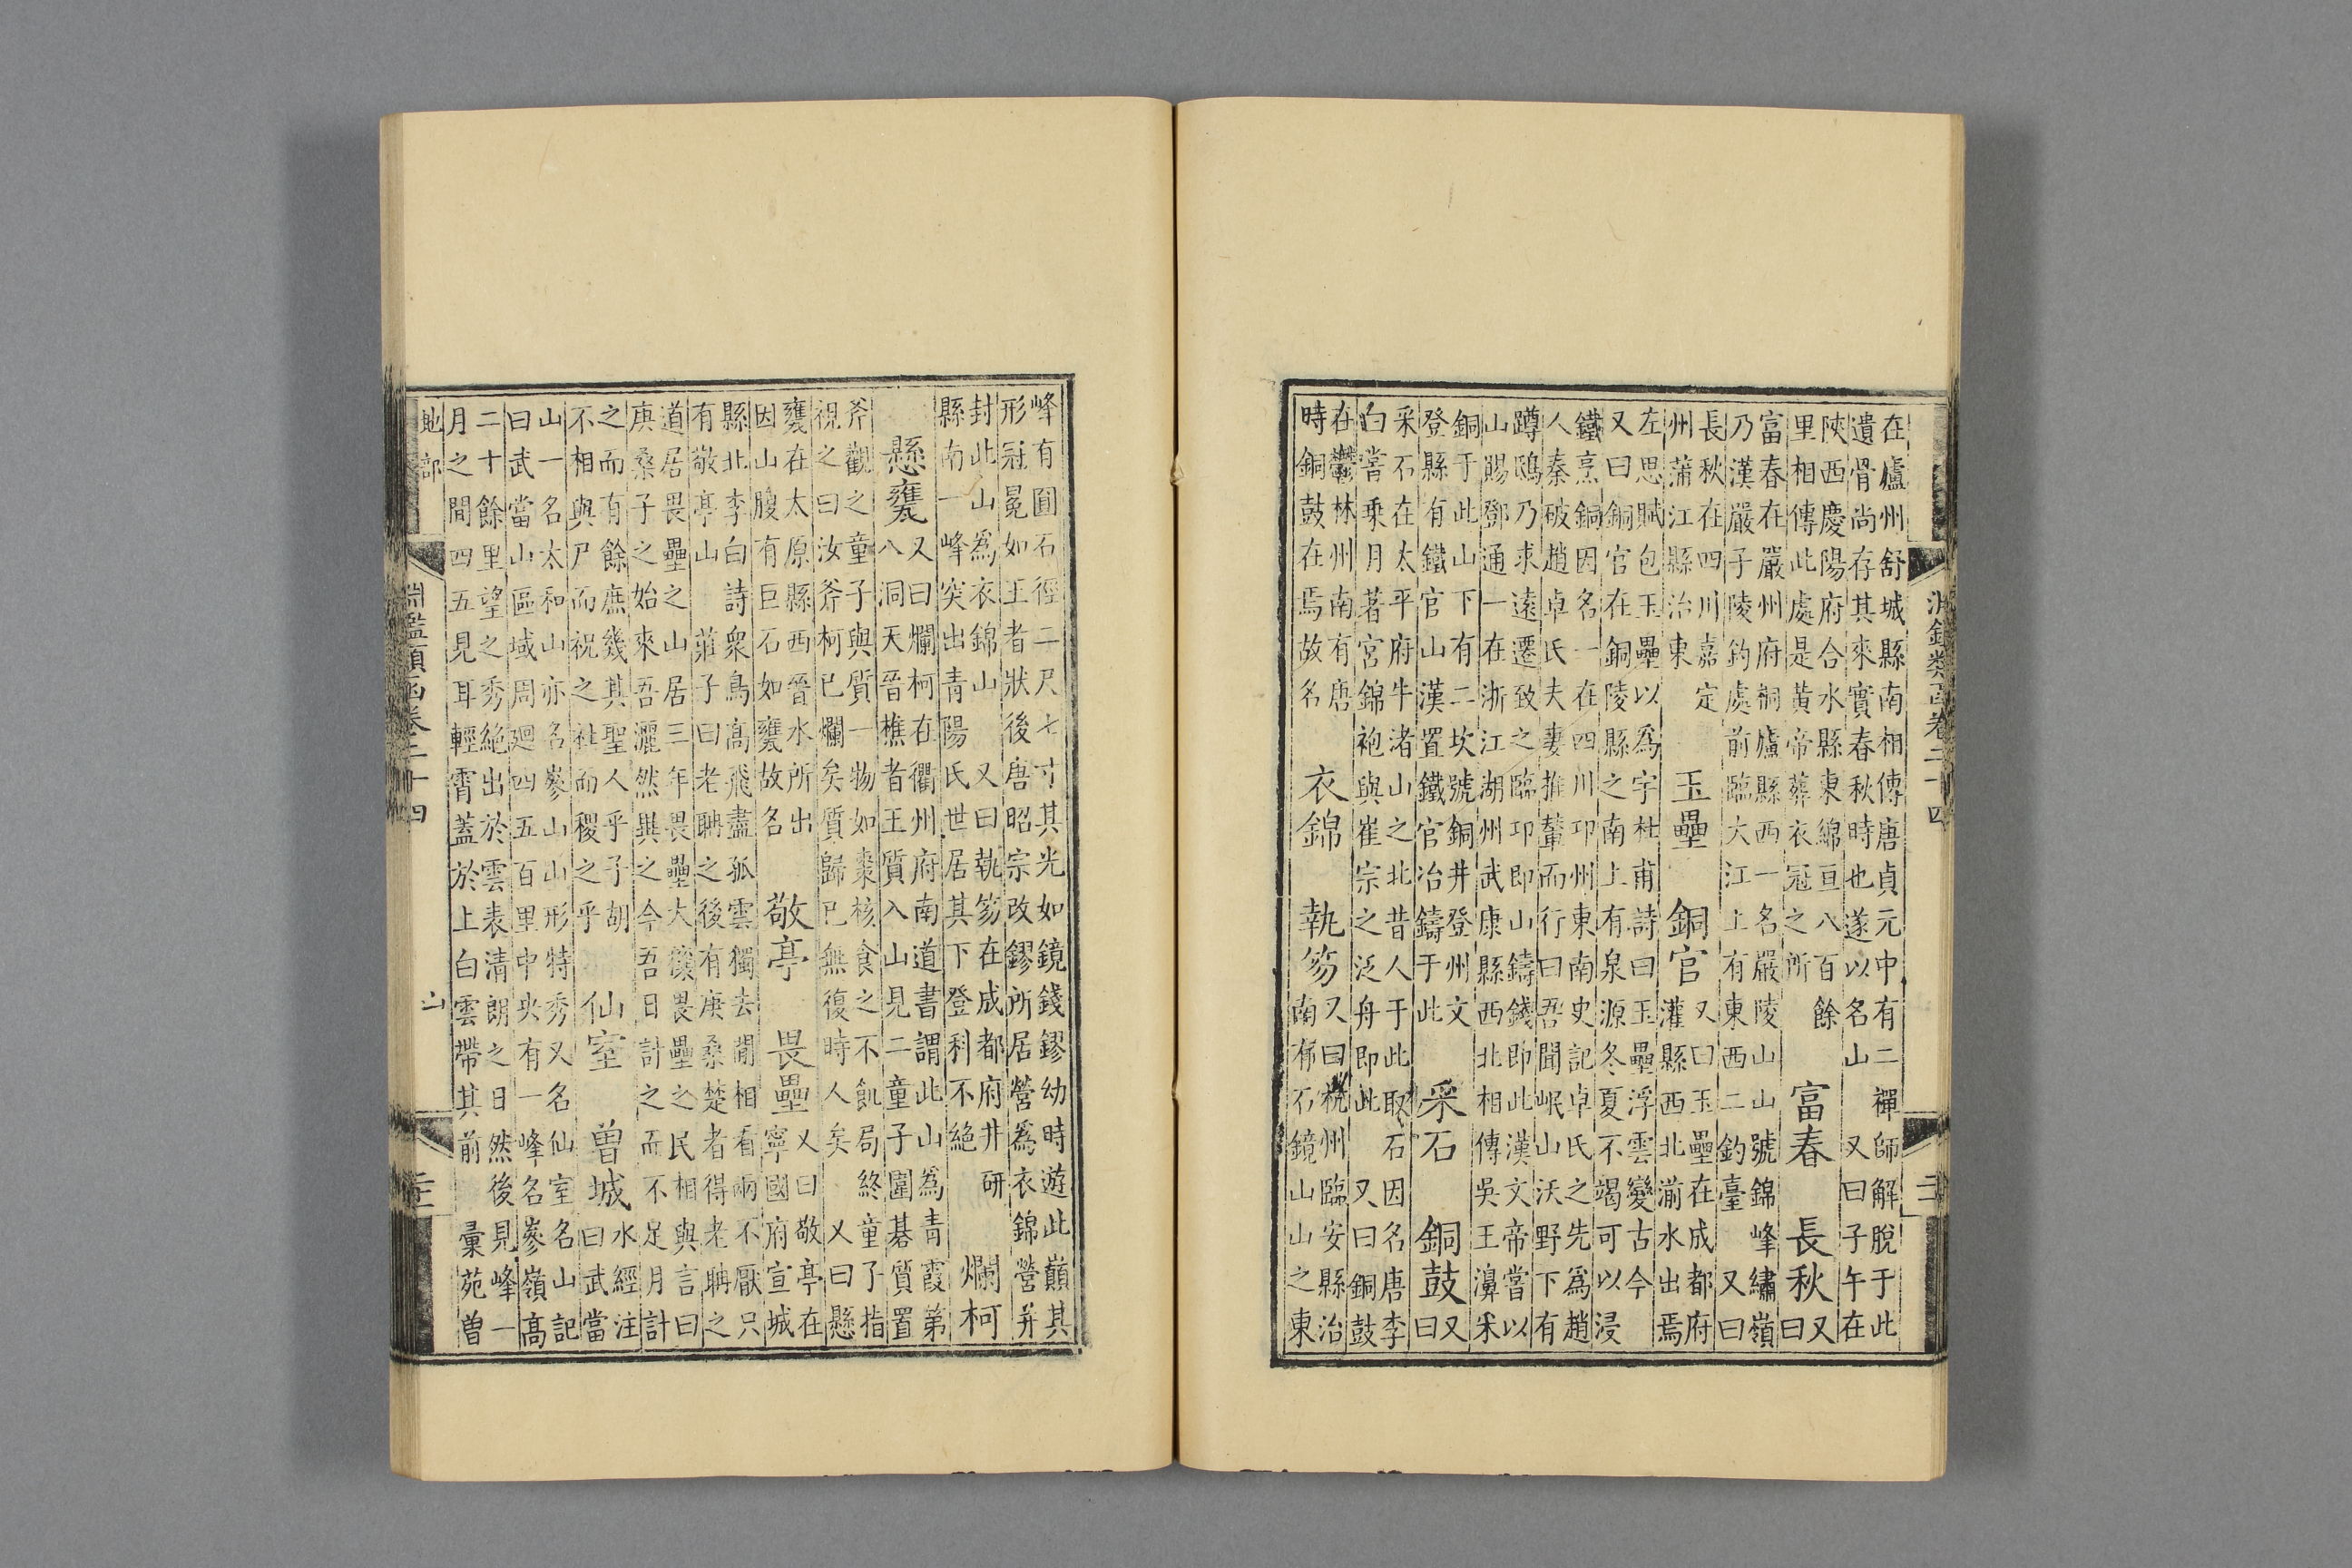 淵鑑類函卷二十四
在廬州舒城縣南相傳唐貞元中有二禪師解脫于此
遺骨尚存其來實春秋時也遂以名山 又曰子午在
陝西慶陽府合水縣東綿亘八百餘
里相傳此處是黃帝葬衣冠之所
富春 長秋 又曰
富春在嚴州府桐廬縣西一名嚴陵山山號錦峰繡嶺
乃漢嚴子陵釣處前臨大江上有東西二釣臺 又曰
長秋在四川嘉定
州蒲江縣治東
玉壘 銅官
又曰玉壘在成都府
灌縣西北湔水出焉
左思賦包玉壘以爲字杜甫詩曰玉壘浮雲變古今
又曰銅官在銅陵縣之南上有泉源冬夏不竭可以浸
鐵烹銅因名一在四川卭州東南史記卓氏之先爲趙
人秦破趙卓氏夫妻推輦而行曰吾聞岷山沃野下有
蹲鴟乃求遠遷致之臨卭即山鑄錢即此漢文帝當以
山賜鄧通一在浙江湖州武康縣西北相傳吳王濞采
銅于此山下有二坎號銅井登州文
登縣有鐵官山漢置鐵官冶鑄于此
采石 銅鼓 又曰
采石在太平府牛渚山之北昔人于此取石因名唐李
白嘗乗月著宮錦袍與崔宗之泛舟即此 又曰銅鼓
在鬱林州南有唐
時銅鼓在焉故名
衣錦 執笏
又曰杭州臨安縣治
南有石鏡山山之東
峰有圓石徑二尺七寸其光如鏡錢鏐幼時遊此巔其
形冠冕如王者狀後唐昭宗改鏐所居營爲衣錦營并
封此山爲衣錦山 又曰執笏在成都府井研
縣南一峰突出青陽氏世居其下登科不絕
爛柯
懸甕
又曰爛柯在衢州府南道書謂此山爲青霞第
八洞天晉樵者王質入山見二童子圍棊質置
斧觀之童子與質一物如棗核食之不飢局終童子指
視之曰汝斧柯已爛矣質歸已無復時人矣 又曰懸
甕在太原縣西晉水所出
因山腹有巨石如甕故名
敬亭 畏壘
又曰敬亭在
寧國府宣城
縣北李白詩衆鳥高飛盡孤雲獨去閒相看兩不厭只
有敬亭山 莊子曰老聃之後有庚桑楚者得老聃之
道居畏壘之山居三年畏壘大穰畏壘之民相與言曰
庚桑子之始來吾灑然異之今吾日計之而不足月計
之而有餘庶幾其聖人乎子胡
不相與尸而祝之社而稷之乎
仙室 曾城
水經注
曰武當
山一名太和山亦名嵾山山形特秀又名仙室名山記
曰武當山區域周廻四五百里中央有一峰名嵾嶺高
二十餘里望之秀絕出於雲表清朗之日然後見峰一
月之間四五見耳輕霄蓋於上白雲帶其前 彙苑曾
地部 山
淵鑑類函卷二十四